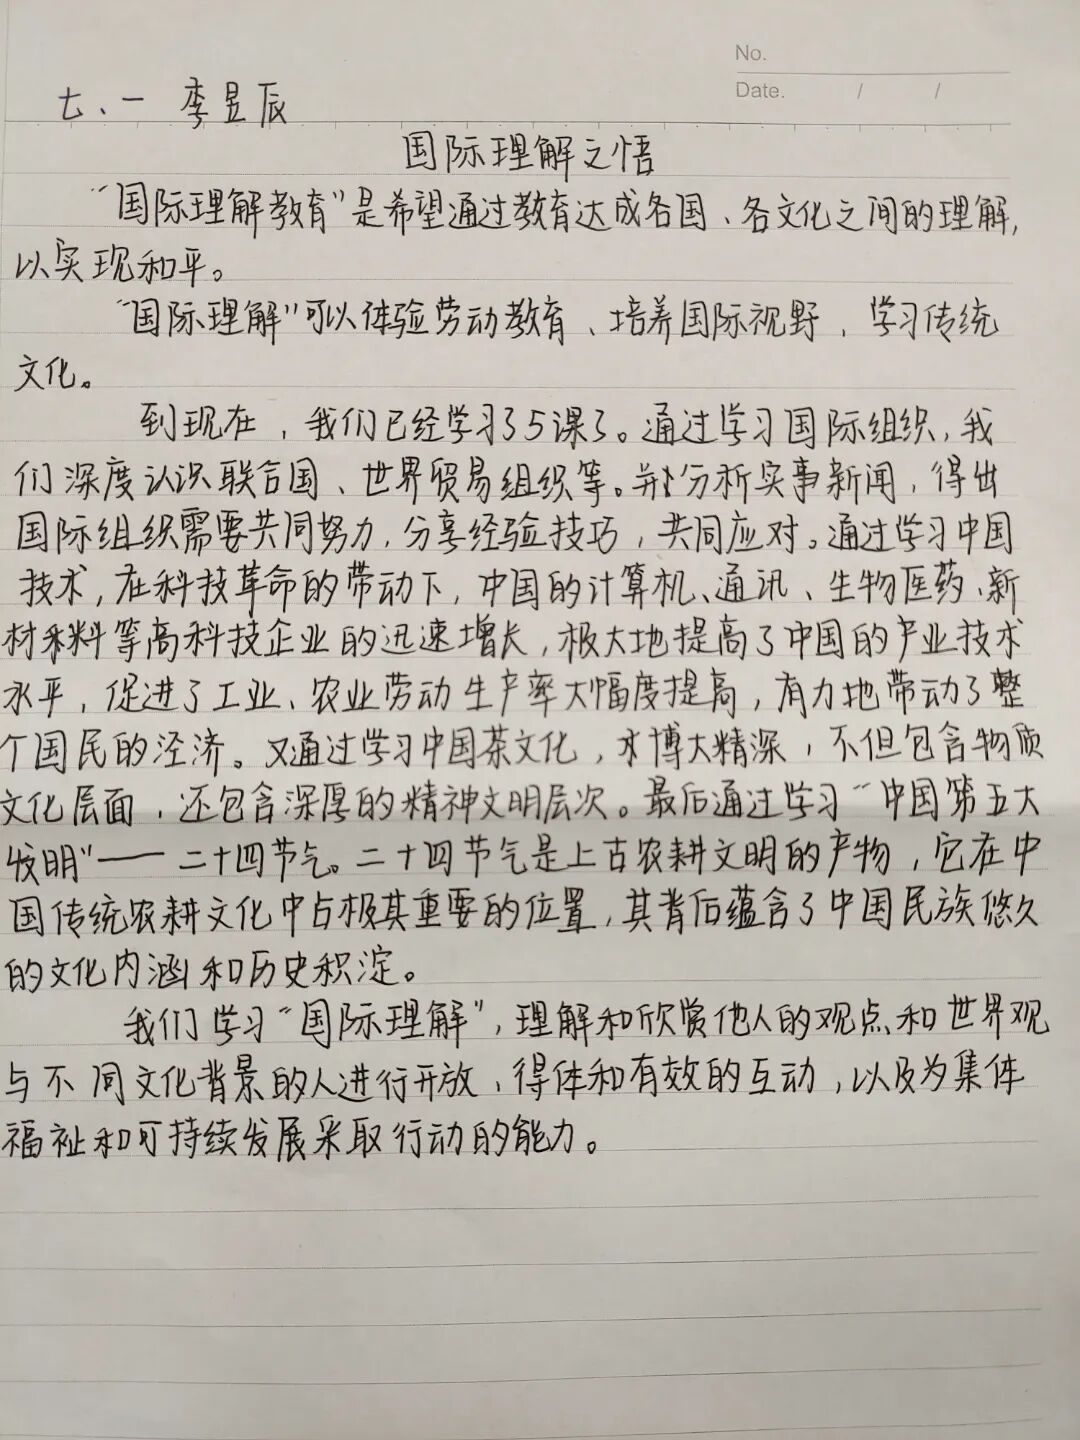 No.
Date. / /
七、一 李昱辰
国际理解之悟
“国际理解教育”是希望通过教育达成各国、各文化之间的理解,
以实现和平。
“国际理解”可以体验劳动教育、培养国际视野,学习传统
文化。
到现在,我们已经学习了5课了。通过学习国际组织,我
们深度认识联合国、世界贸易组织等。并分析实事新闻,得出
国际组织需要共同努力,分享经验技巧,共同应对。通过学习中国
技术,在科技革命的带动下,中国的计算机、通讯、生物医药、新
材料等高科技企业的迅速增长,极大地提高了中国的产业技术
水平,促进了工业、农业劳动生产率大幅度提高,有力地带动了整
个国民的泾济。又通过学习中国茶文化,博大精深,不但包含物质
文化层面,还包含深厚的精神文明层次。最后通过学习“中国第五大
发明”——二十四节气。二十四节气是上古农耕文明的产物,它在中
国传统农耕文化中占极其重要的位置,其背后蕴含了中国民族悠久
的文化内涵和历史积淀。
我们学习“国际理解”,理解和欣赏他人的观点和世界观
与不同文化背景的人进行开放、得体和有效的互动,以及为集体
福祉和可持续发展采取行动的能力。